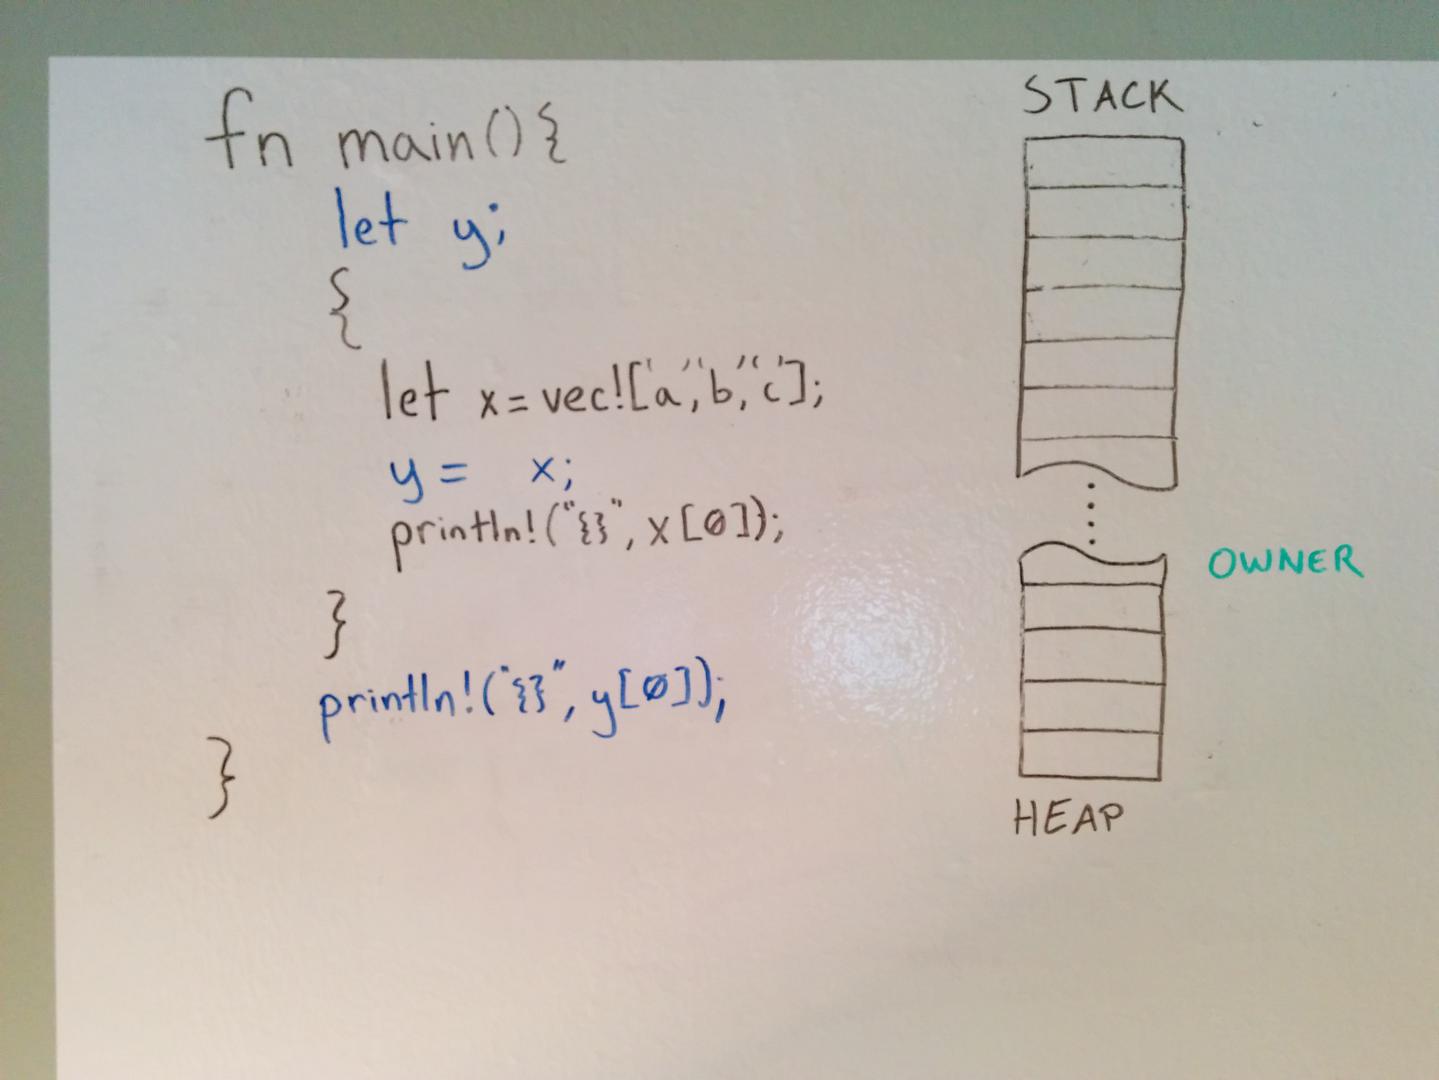 fn main(){
let y;
{
let x=vec!['a','b','c'];
y= x;
println!("{}", x[0]);
}
println!("{}", y[0]);
}
STACK
OWNER
HEAP